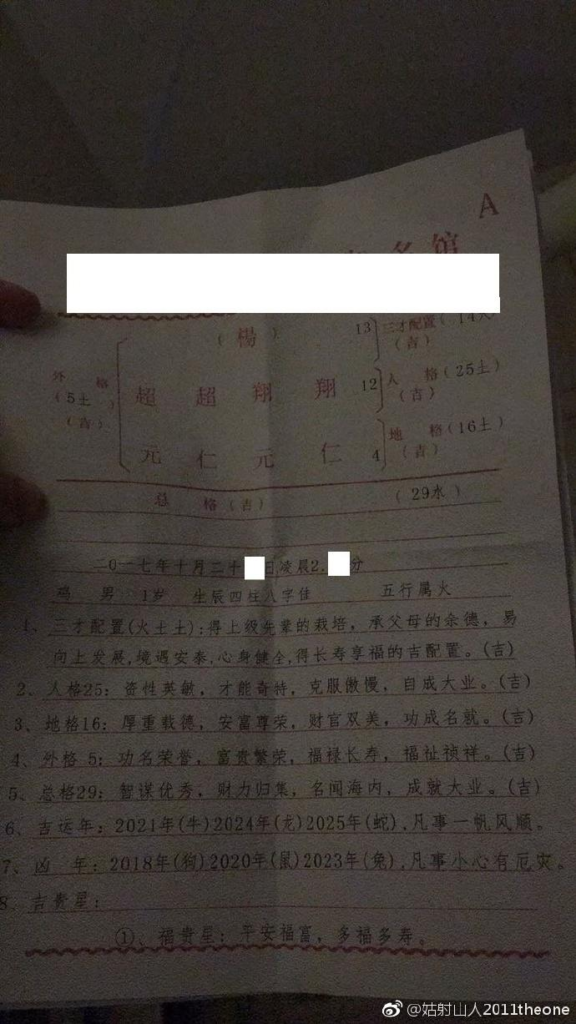 A
名馆
(楊)
13 三才配置(14火)
(吉)
外 格
(5土)
(吉)
超 超 翔 翔
12 人 格(25土)
(吉)
元 仁 元 仁
4 地 格(16土)
(吉)
总 格(吉) (29水)
二0一七年十月二十 日凌晨2. 分
鸡 男 1岁 生辰四柱八字佳 五行属火
1、三才配置(火土土):得上级先辈的栽培，承父母的余德，易
向上发展,境遇安泰,心身健全,得长寿享福的吉配置。(吉)
2、人格25：资性英敏，才能奇特，克服傲慢，自成大业。(吉)
3、地格16：厚重载德，安富尊荣，财官双美，功成名就。(吉)
4、外格 5：功名荣誉，富贵繁荣，福禄长寿，福祉祯祥。(吉)
5、总格29：智谋优秀，财力归集，名闻海内，成就大业。(吉)
6、吉运年：2021年(牛)2024年(龙)2025年(蛇),凡事一帆风顺。
7、凶 年：2018年(狗)2020年(鼠)2023年(兔),凡事小心有厄灾。
8、吉贵星：
①、福贵星：平安福富，多福多寿。
@姑射山人2011theone